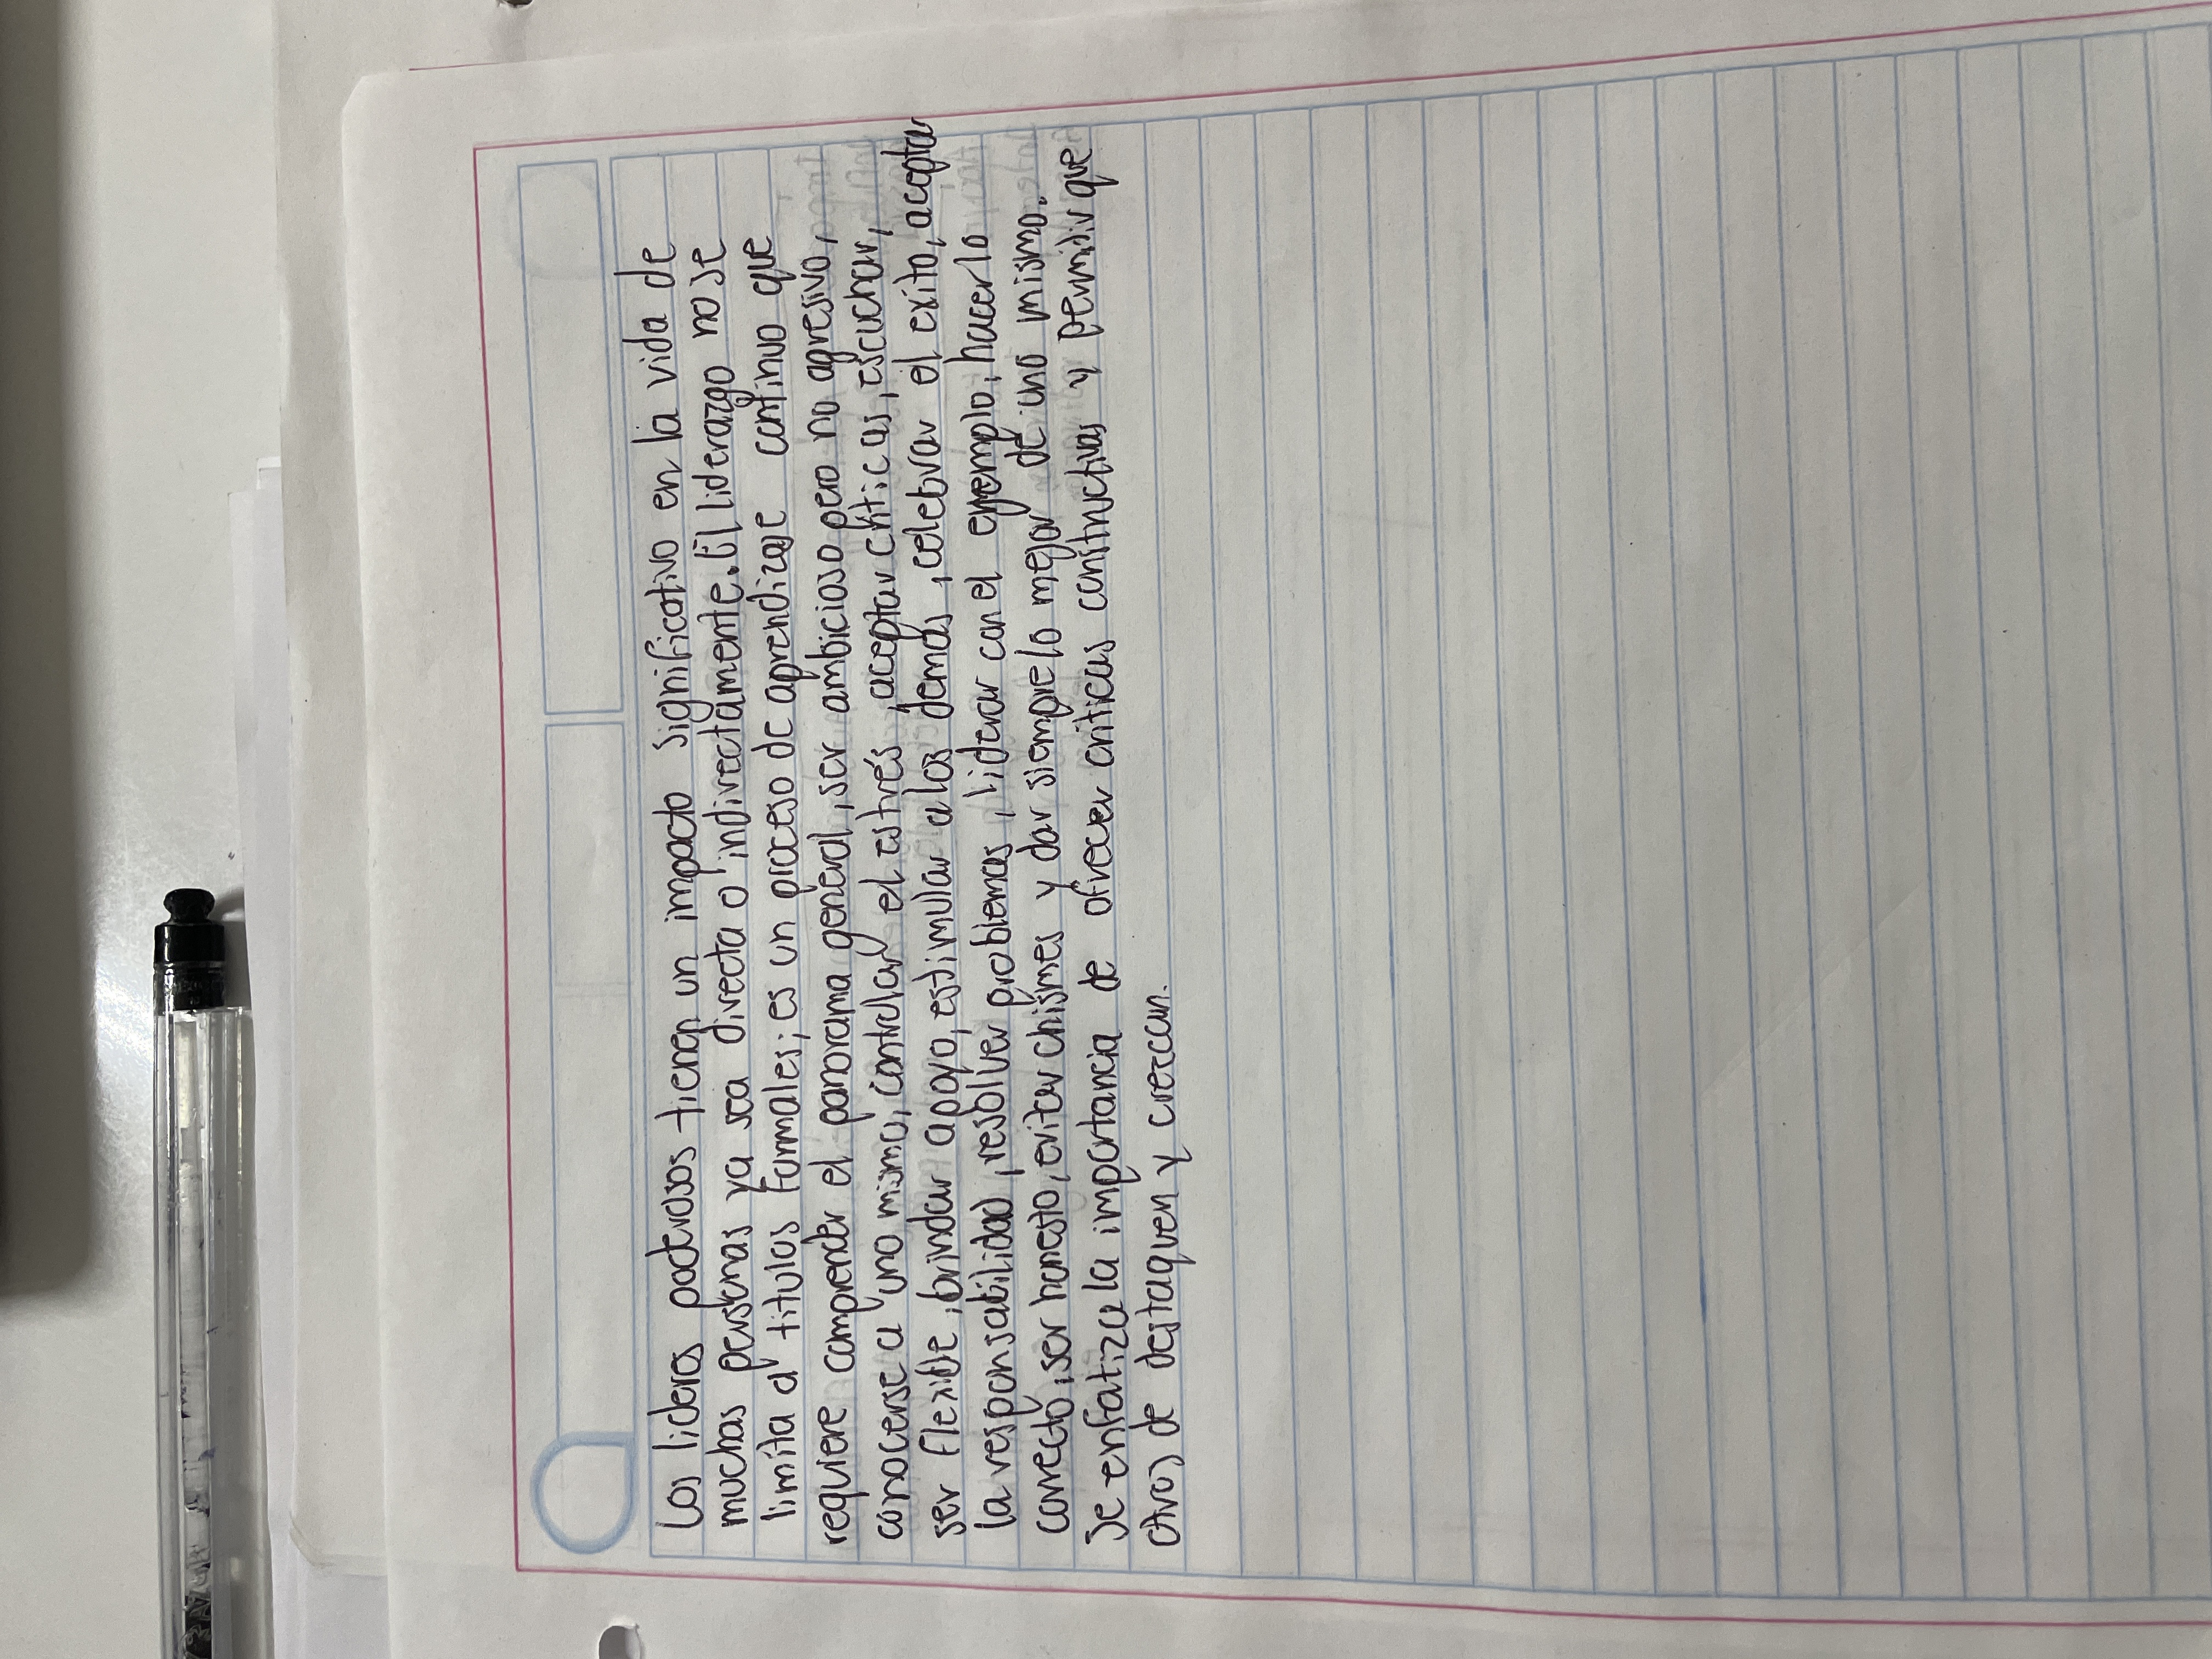 Los lideres poderosos tienen un impacto significativo en la vida de
muchas personas ya sea directa o indirectamente. El liderazgo no se
limita a titulos formales; es un proceso de aprendizaje continuo que
requiere comprender el panorama general, ser ambicioso pero no agresivo,
conocerse a uno mismo, controlar el estrés, aceptar criticas, escuchar,
ser flexible, brindar apoyo, estimular a los demas, celebrar el exito, aceptar
la responsabilidad, resolver problemas, liderar con el ejemplo, hacer lo
correcto, ser honesto, evitar chismes y dar siempre lo mejor de uno mismo.
Se enfatiza la importancia de ofrecer criticas constructivas y permitir que
otros de destaquen y crezcan.